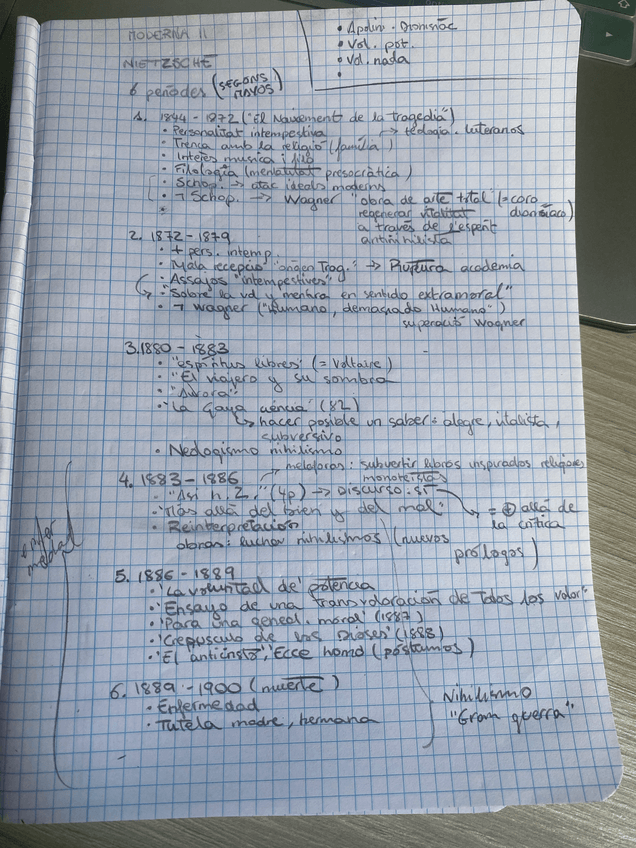 MODERNA II
• Apolini. - Dionisíac
• Vol. pot.
• Vol. nada
•
NIETZSCHE
6 períodes (SEGONS
1. 1844 - 1872 ("El Naixement de la tragedia")
• Personalitat intempestiva
→ teologia. luteranos
• Trenca amb la religió (família)
• Interès musica i filo
• Filologia (mentalitat presocràtica)
• Schop. → atac ideals moderns
• ¬ Schop. → Wagner "obra de arte total" (= coro
regenerar vitalitat dionisíaco)
•
a través de l'esperit
antinihilista
2. 1872 - 1879
• + pers. intemp.
• Mala recepció "origen Trag." → academia
• Assajos "intempestives"
↳ "Sobre la vd y mentira en sentido extramoral"
• ¬ Wagner ("Humano, demasiado Humano")
superació Wagner
3. 1880 - 1883
• "espíritus libres" (= Voltaire)
• "El viajero y su sombra
• "Aurora"
• "La gaya ciencia" (82)
↳ hacer posible un saber: alegre, vitalista,
subversivo
• Neologismo nihilismo
metáforas: subvertir libros inspirados religiones
monoteístas
4. 1883 - 1886
• "Así h. Z." (4p) → Discurso:
• "Más allá del bien y del mal"
= ⊕ allá de
la crítica
• Reinterpretación
obras: luchar nihilismos (nuevos
prólogos)
5. 1886 - 1889
• "La voluntad de potencia
• "Ensayo de una transvaloración de todos los valor"
• "Para una geneal. moral" (1887)
• "Crepusculo de los Dioses" (1888)
• "El anticristo", Ecce homo (póstumos)
6. 1889 - 1900 (muerte)
• Enfermedad
• Tutela madre, hermana
Nihilismo
"Gran guerra"